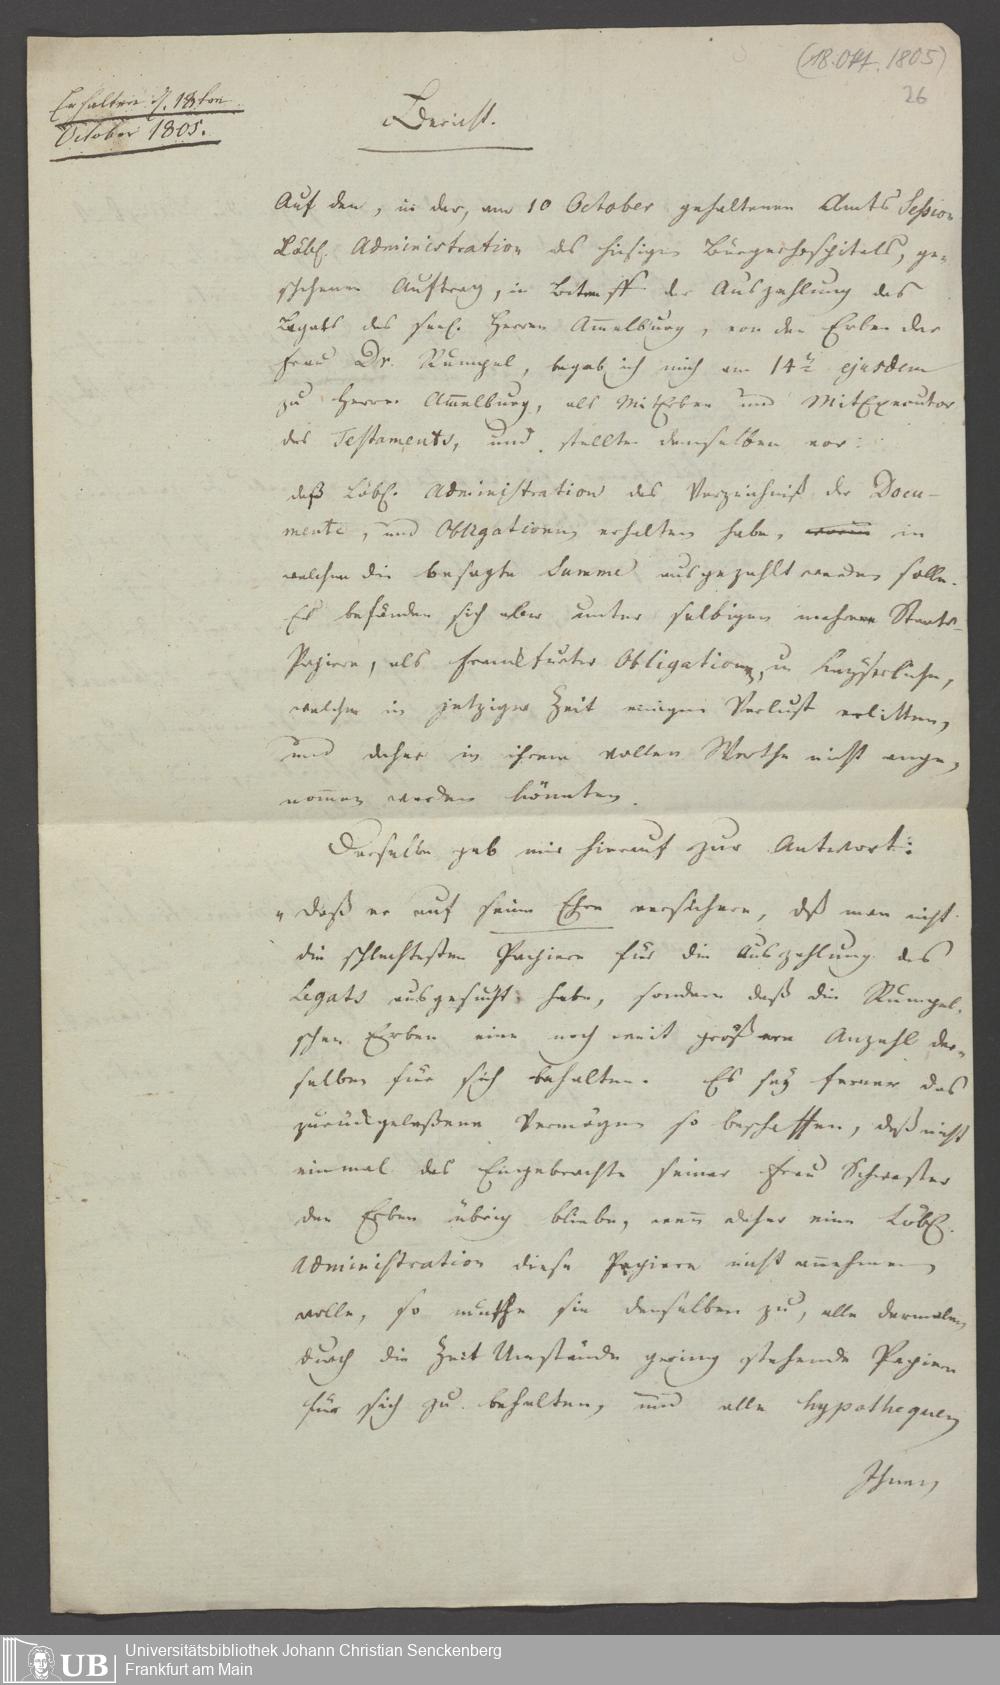 (18. Okt. 1805)
26
Erhalten d. 18ten
October 1805.
Bericht.
Auf den, in der, am 10 October gehaltenen Amts Session
Löbl. Administration des hiesigen Bürgerhospitals, ge-
schehenen Auftrag, in Betreff der Auszahlung des
Legats des seel. Herrn Ammelburg, von den Erben der
Frau Dr. Rumpel, begab ich mich am 14t ejusdem
zu Herrn Ammelburg, als MitErben und MitExecutor
des Testaments, und stellte demselben vor:
daß Löbl. Administration das Verzeichniß der Docu-
mente, und Obligationen erhalten habe, in
welchen die besagte Summe ausgezahlt werden solle.
Es befänden sich aber unter selbigen mehrere Staats-
Papiere, als Frankfurter Obligationen, u Kayserliche,
welche in jetziger Zeit einigen Verlust erlitten,
und daher in ihrem vollen Werthe nicht ange-
nommen werden könnten.
Derselbe gab mir hierauf zur Antwort:
„Daß er auf seine Ehre versichere, daß man nicht
die schlechtesten Papiere für die Auszahlung des
Legats ausgesucht habe, sondern daß die Rumpel-
schen Erben eine noch weit größere Anzahl der-
selben für sich behalten. Es sey ferner das
zurückgelaßene Vermögen so beschaffen, daß nicht
einmal das Eingebrachte seiner Frau Schwester
den Erben übrig bliebe, wenn daher eine Löbl.
Administration diese Papiere nicht annehmen
wolle, so muthe sie denselben zu, alle dermalen
durch die Zeit Umstände gering stehende Papiere
für sich zu behalten, und alle Hypothequen
Ihnen,
UB
Universitätsbibliothek Johann Christian Senckenberg
Frankfurt am Main